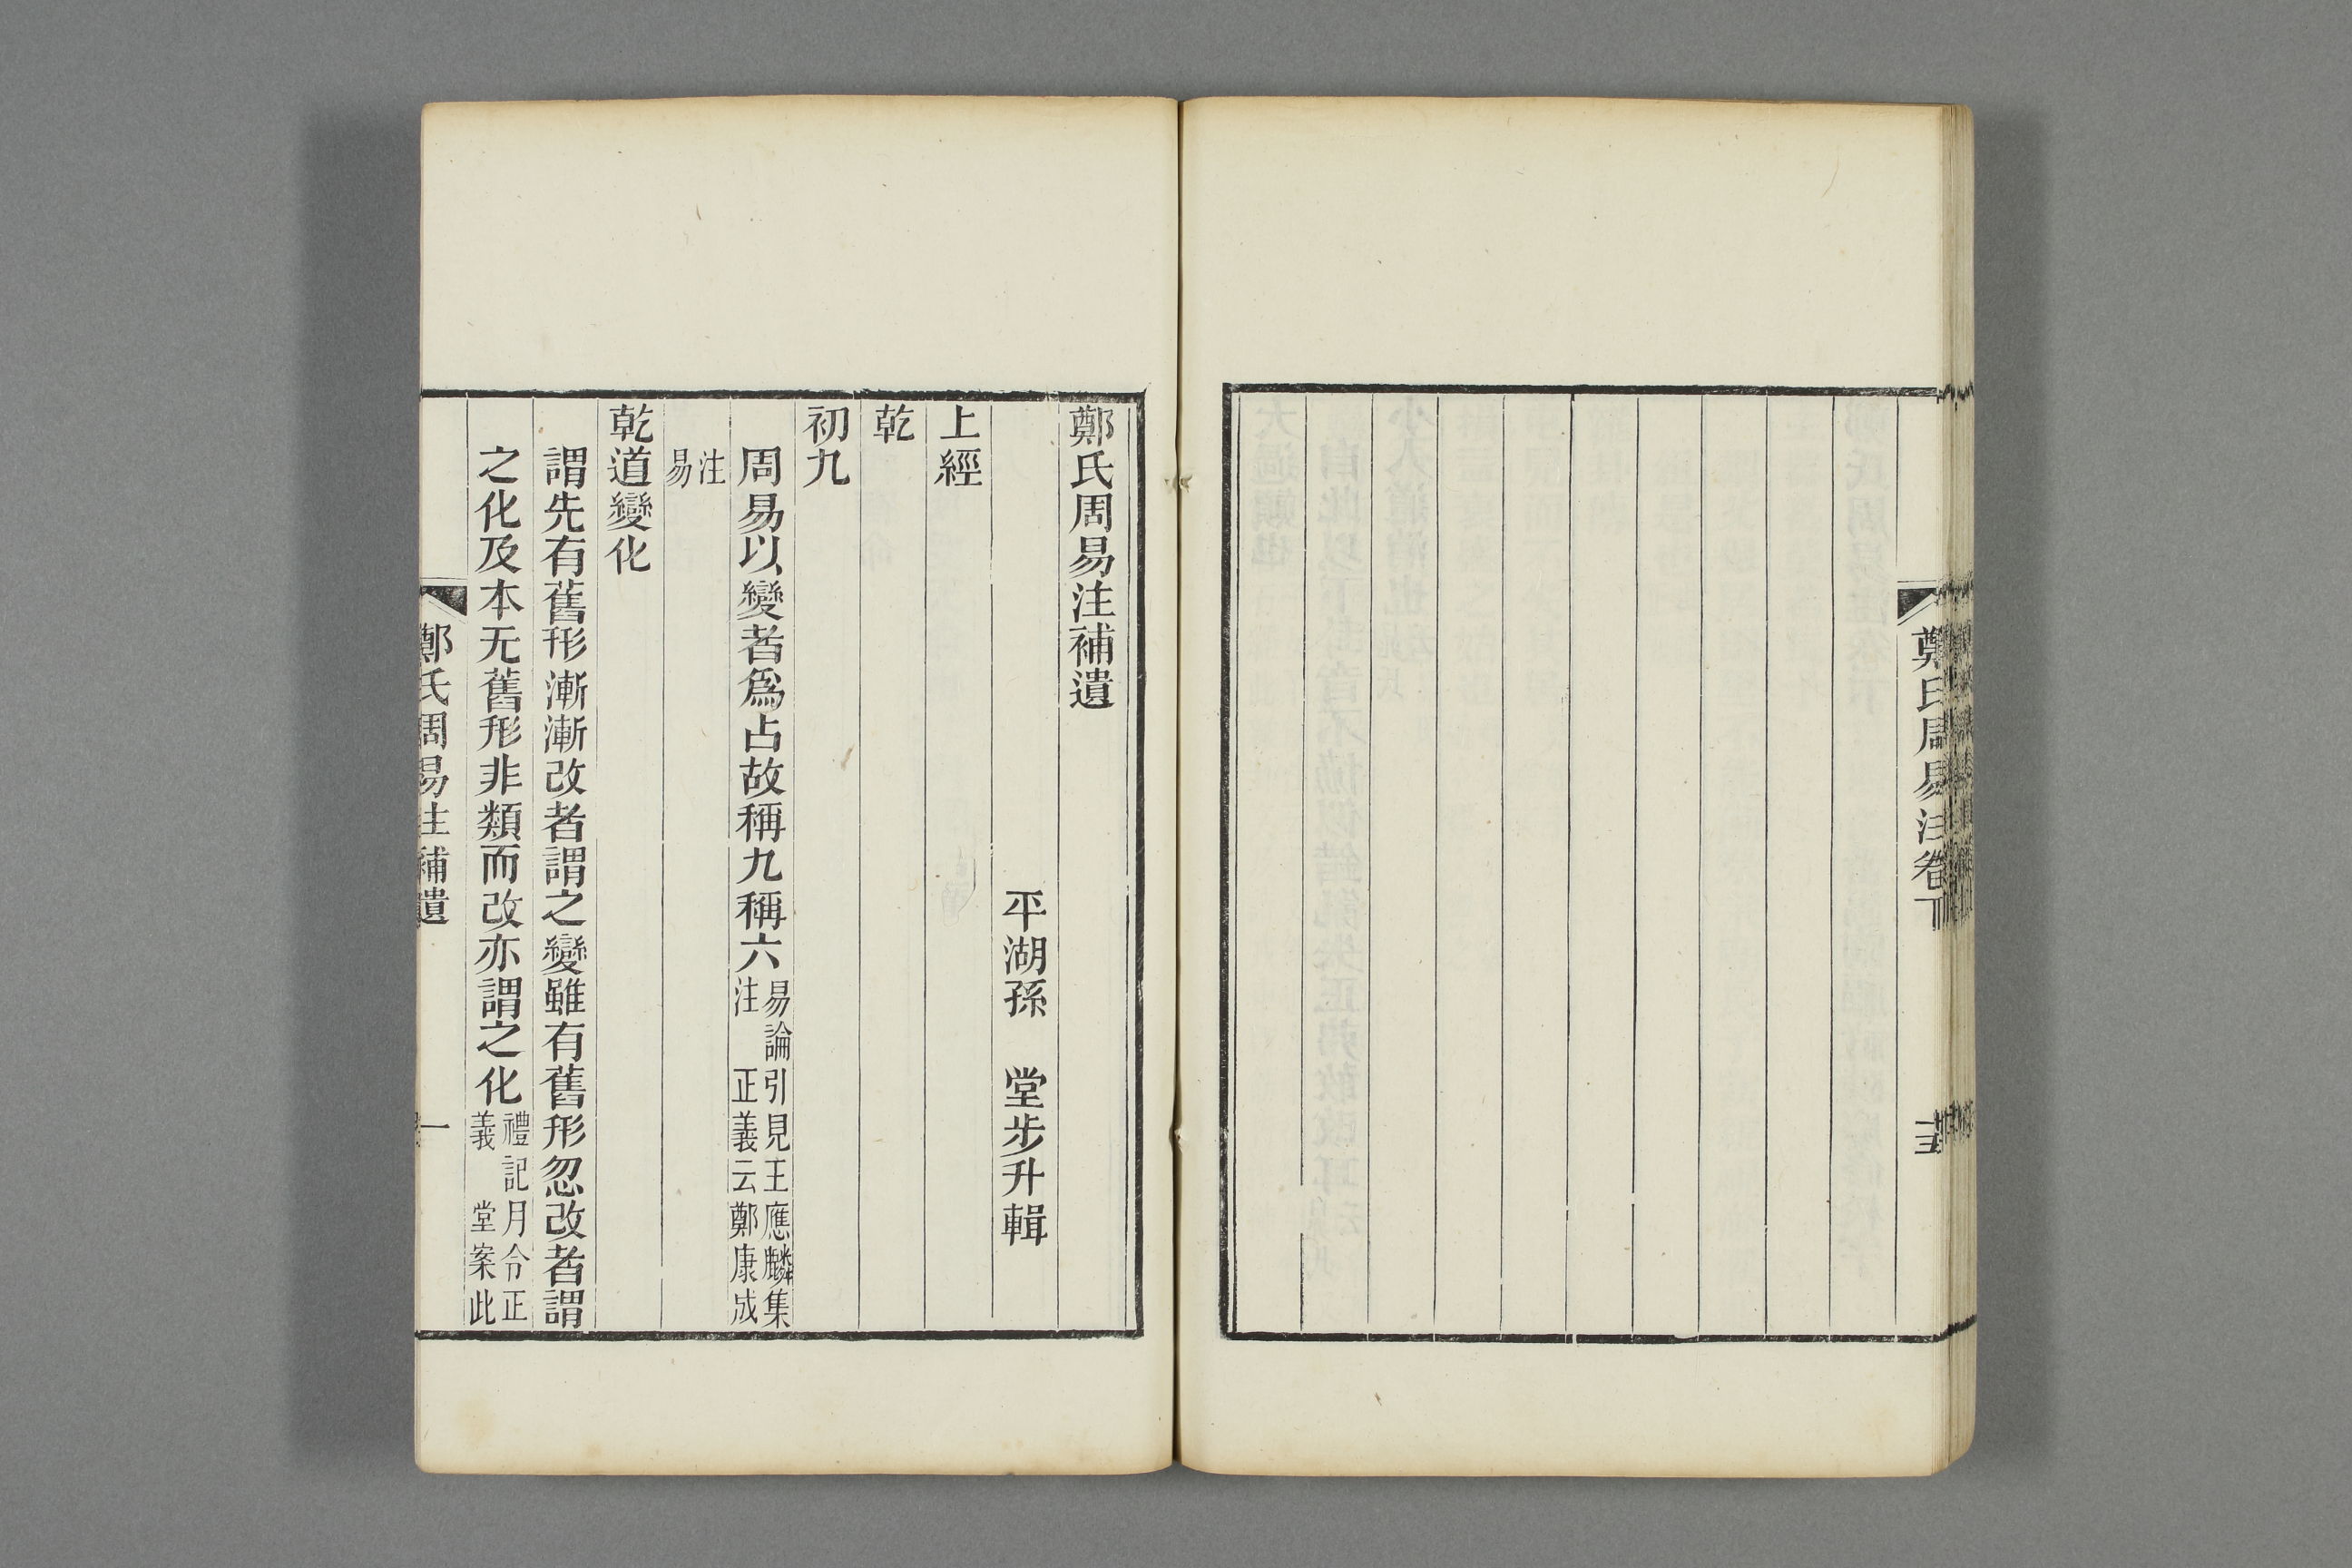 鄭氏周易注卷下
鄭氏周易注補遺
平湖孫　堂步升輯
上經
乾
初九
周易以變者爲占故稱九稱六易論引見王應麟集
注　正義云鄭康成
注
易
乾道變化
謂先有舊形漸漸改者謂之變雖有舊形忽改者謂
之化及本无舊形非類而改亦謂之化禮記月令正
義　堂案此
鄭氏周易注補遺
一